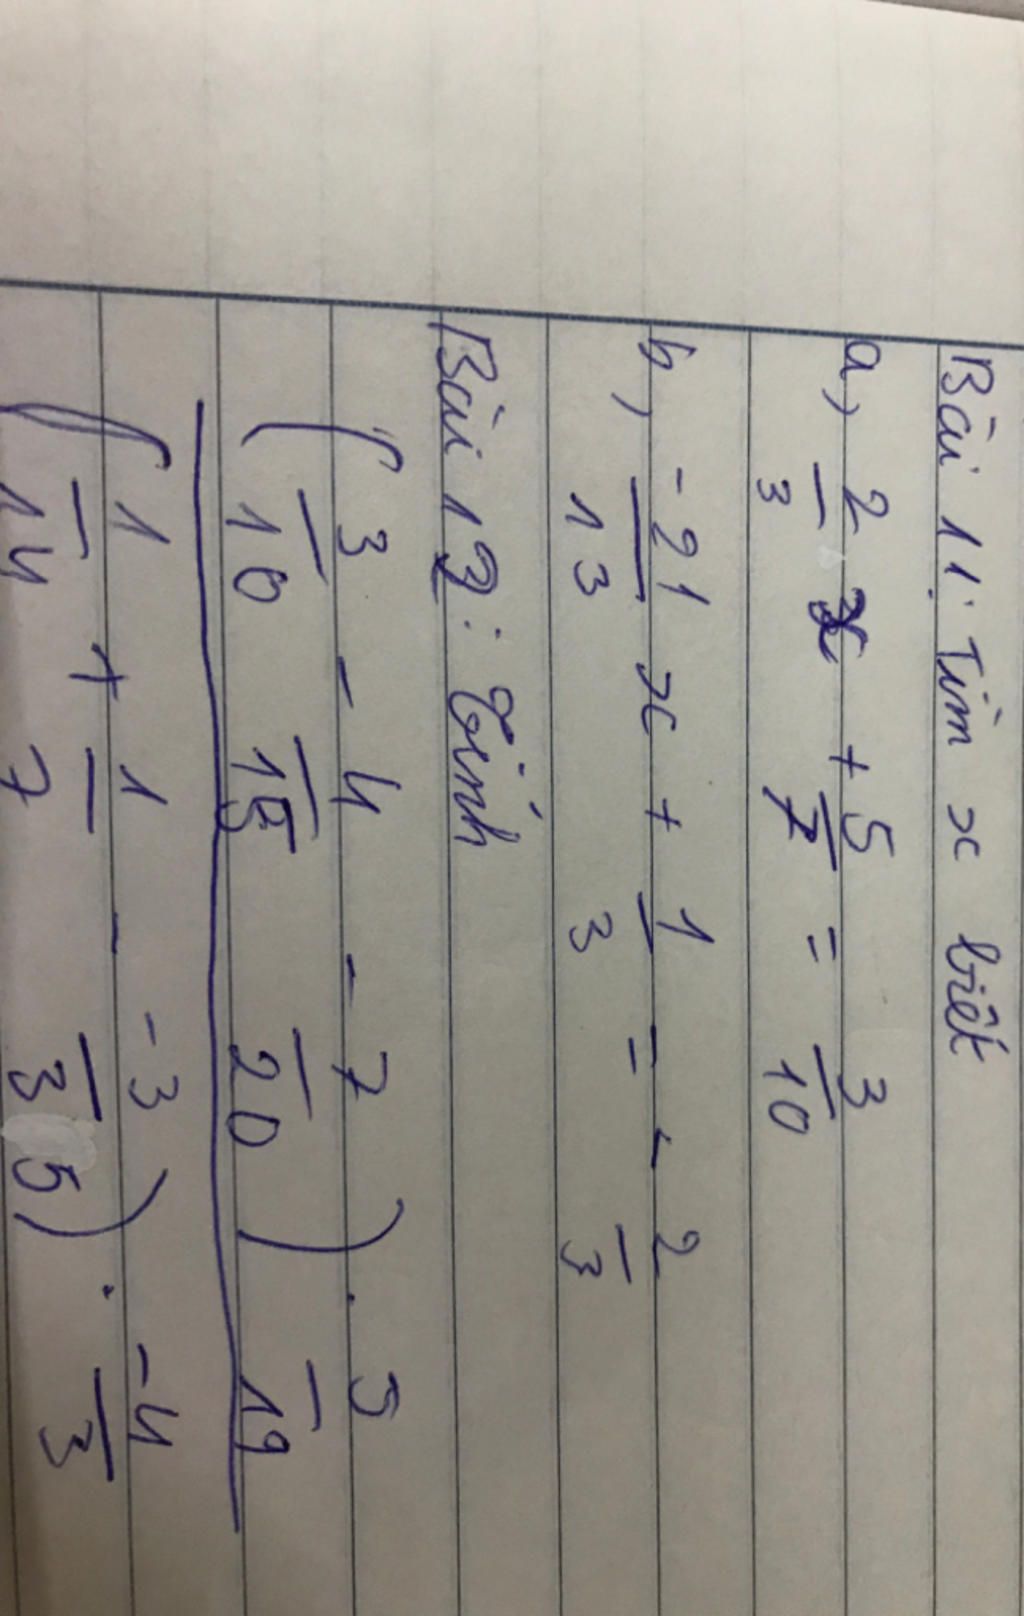 Bài 11: Tìm x biết
a, 2/3 x + 5/7 = 3/10
b, -21/13 x + 1/3 = -2/3
Bài 12: Tính
(3/10 - 4/15 - 7/20) . 5/19
(1/14 + 1/7 - -3/35) . -4/3